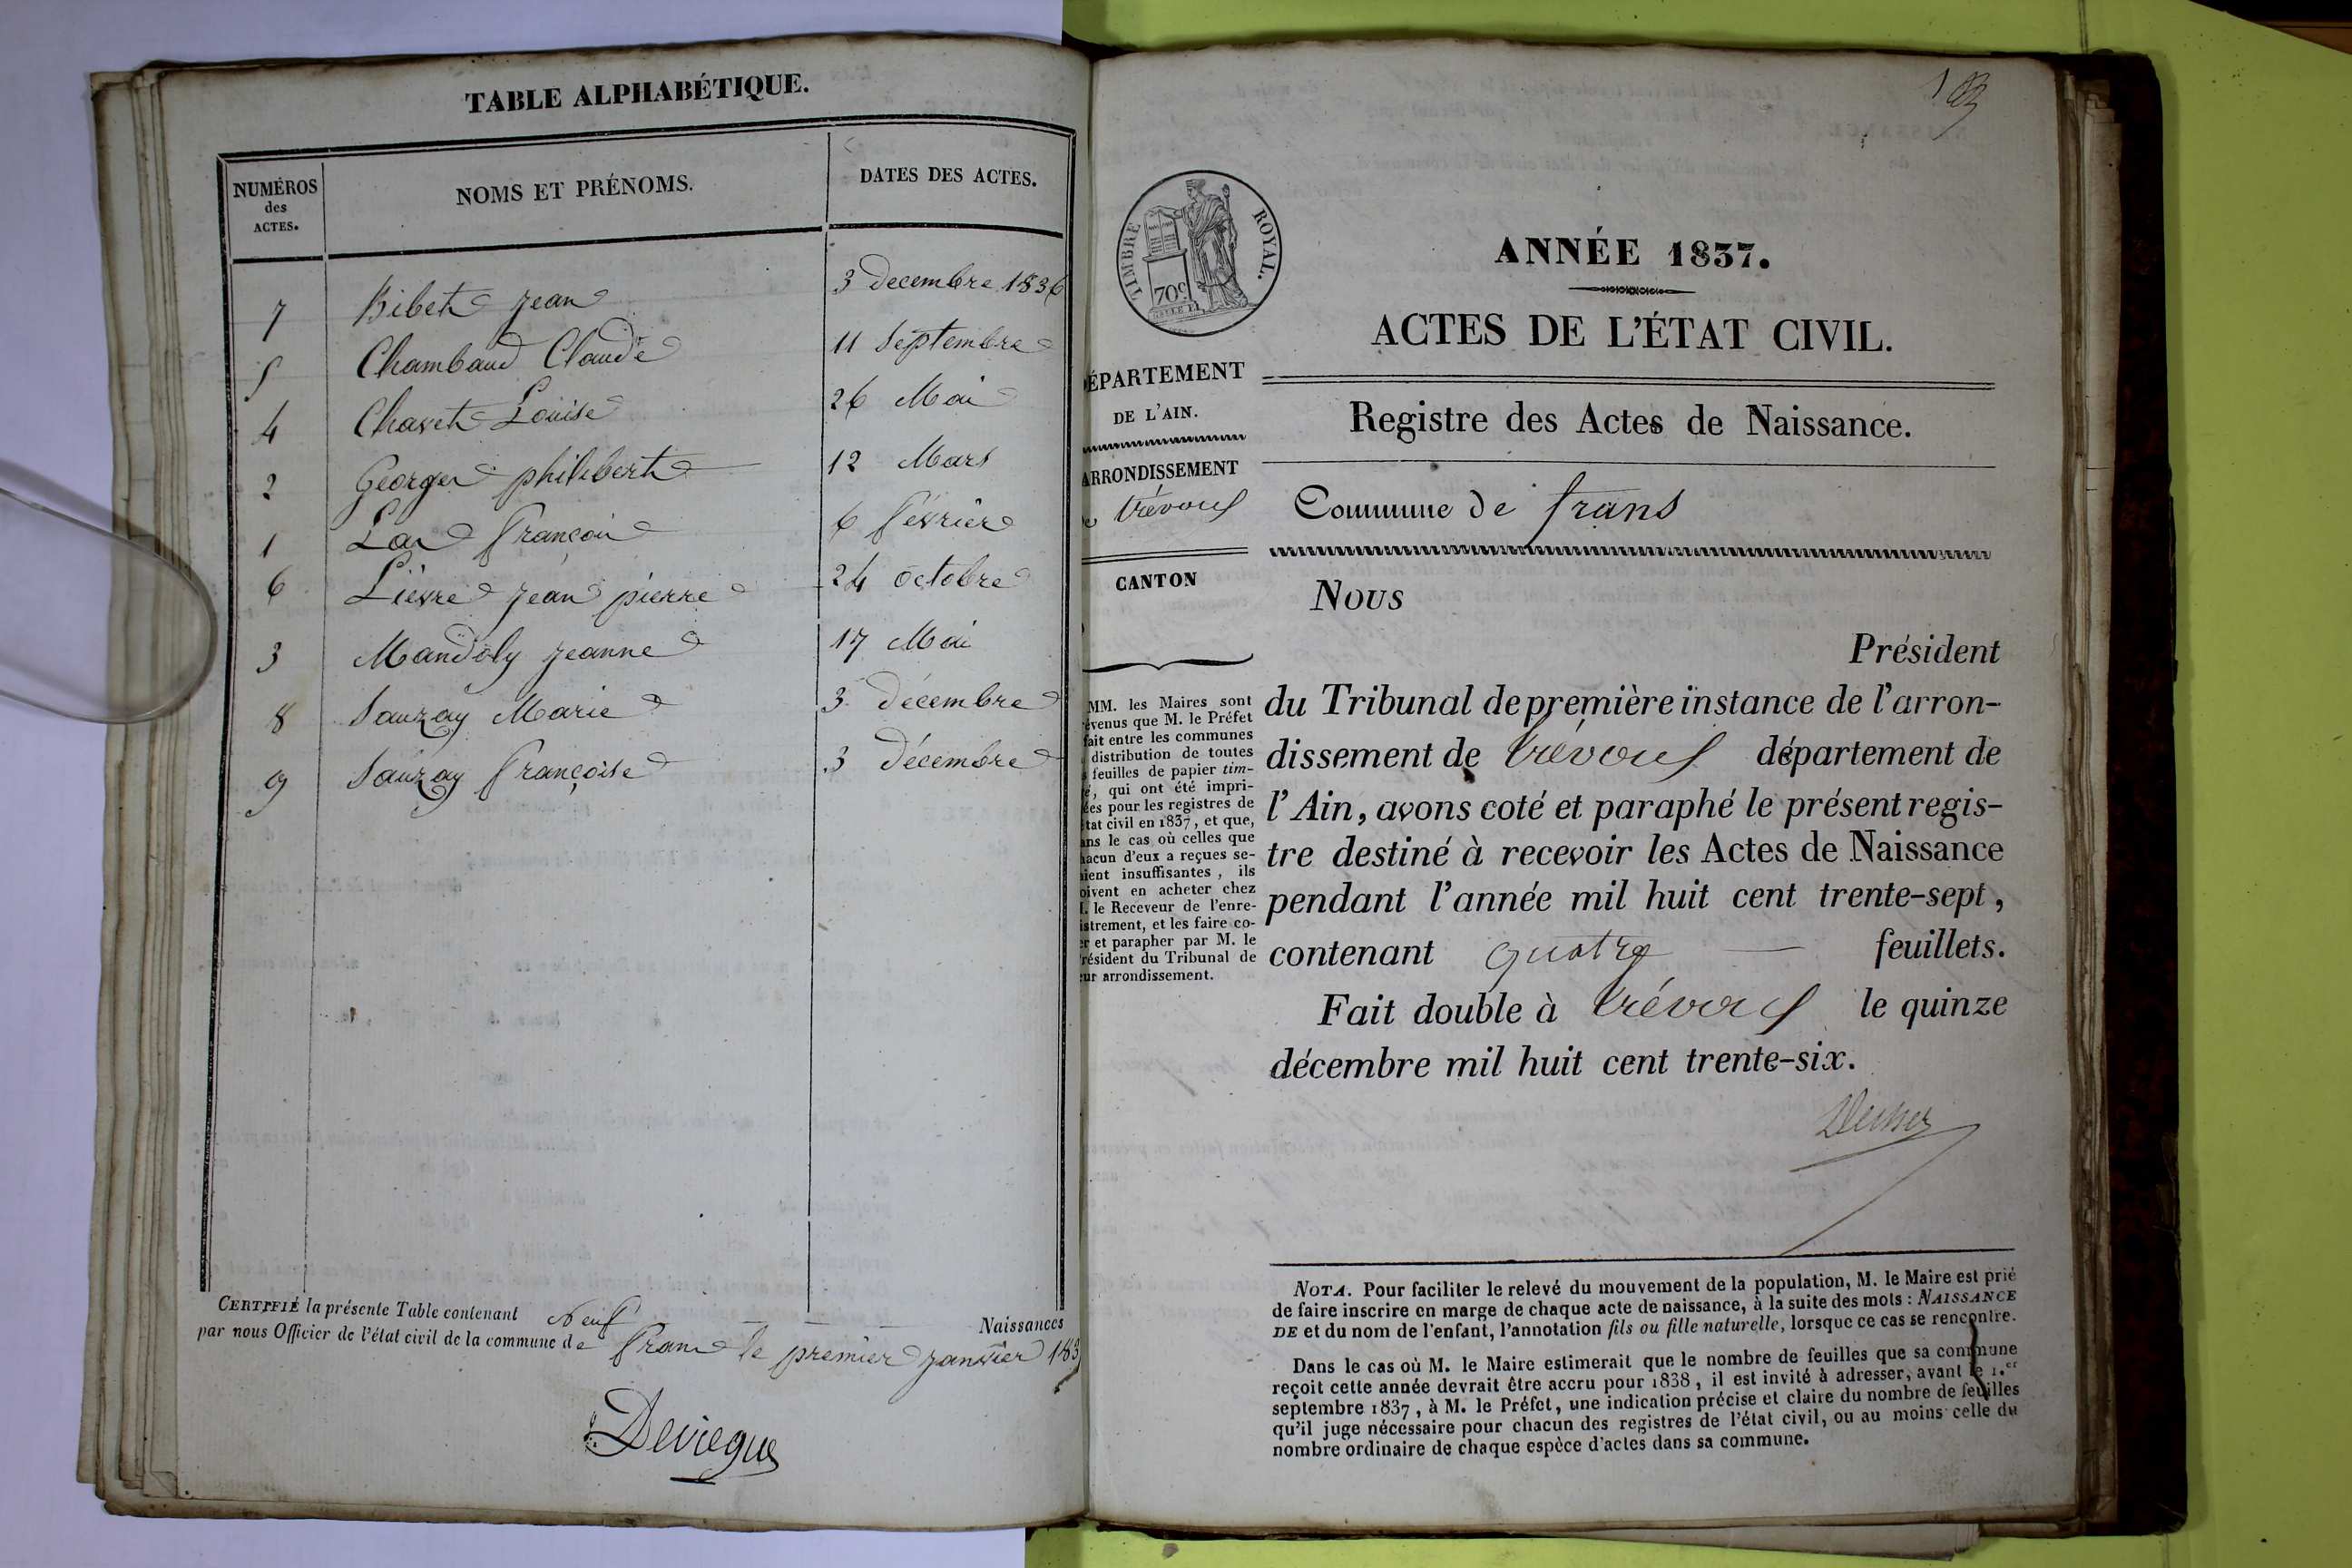 TABLE ALPHABÉTIQUE.
NUMÉROS
des
ACTES.
NOMS ET PRÉNOMS.
DATES DES ACTES.
7 Bibet jean 3 decembre 1836
5 Chambaud Claude 11 Septembre
4 Chavet Louise 26 Mai
2 George philibert 12 Mars
1 françois 6 février
6 Lièvre jean pierre 24 octobre
3 Mandoly jeanne 17 Mai
8 Sauzay Marie 3 décembre
9 Sauzay françoise 3 décembre
CERTIFIÉ la présente Table contenant Neuf Naissances
par nous Officier de l'état civil de la commune de frans le premier janvier 183
Deviegue
TIMBRE ROYAL.
70c
ÉPARTEMENT
DE L'AIN.
ARRONDISSEMENT
de trévoux
CANTON
MM. les Maires sont
évenus que M. le Préfet
fait entre les communes
distribution de toutes
feuilles de papier tim-
é, qui ont été impri-
ées pour les registres de
état civil en 1837, et que,
ans le cas où celles que
hacun d'eux a reçues se-
aient insuffisantes, ils
oivent en acheter chez
M. le Receveur de l'enre-
istrement, et les faire co-
er et parapher par M. le
résident du Tribunal de
eur arrondissement.
ANNÉE 1837.
ACTES DE L'ÉTAT CIVIL.
Registre des Actes de Naissance.
Commune de frans
Nous
Président
du Tribunal de première instance de l'arron-
dissement de trévoux département de
l'Ain, avons coté et paraphé le présent regis-
tre destiné à recevoir les Actes de Naissance
pendant l'année mil huit cent trente-sept,
contenant quatre feuillets.
Fait double à trévoux le quinze
décembre mil huit cent trente-six.
NOTA. Pour faciliter le relevé du mouvement de la population, M. le Maire est prié
de faire inscrire en marge de chaque acte de naissance, à la suite des mots : NAISSANCE
DE et du nom de l'enfant, l'annotation fils ou fille naturelle, lorsque ce cas se rencontre.
Dans le cas où M. le Maire estimerait que le nombre de feuilles que sa commune
reçoit cette année devrait être accru pour 1838, il est invité à adresser, avant le 1.er
septembre 1837, à M. le Préfet, une indication précise et claire du nombre de feuilles
qu'il juge nécessaire pour chacun des registres de l'état civil, ou au moins celle du
nombre ordinaire de chaque espèce d'actes dans sa commune.